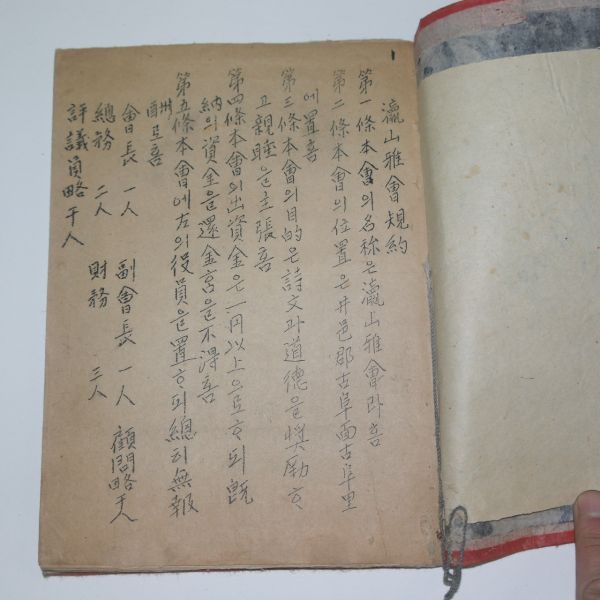 1
瀛山雅會規約
第一條本會의名称은瀛山雅會라홈
第二條本會의位置은井邑郡古阜面古阜里
에置홈
第三條本會의目的은詩文과道德을奬勵ᄒᆞ
고親睦을主張홈
第四條本會의出資金은一円以上으로ᄒᆞ되旣
納의資金을還金홈을不得홈
第五條本會에左의役員을置ᄒᆞ되總히無報
酬로홈
會長 一人 副會長 一人 顧問略干人
總務 二人 財務 三人
評議員略干人